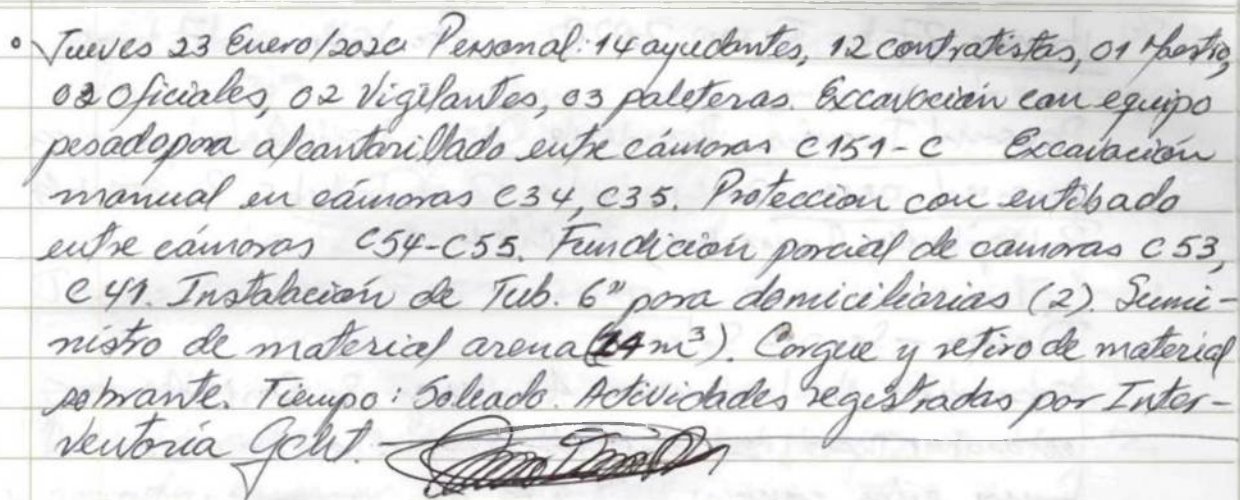 Jueves 23 Enero/2020 Personal: 14 ayudantes, 12 contratistas, 01 Mastro,
02 Oficiales, 02 Vigilantes, 03 paleteras. Excavación con equipo
pesado para alcantarillado entre cámaras C151-C Excavación
manual en cámaras C34, C35. Protección con entibado
entre cámaras C54-C55. Fundición parcial de camaras C53,
C41. Instalación de Tub. 6" para domiciliarias (2). Sumi-
nistro de material arena (24m³). Cargue y retiro de material
sobrante. Tiempo: Soleado. Actividades registradas por Inter-
ventoría